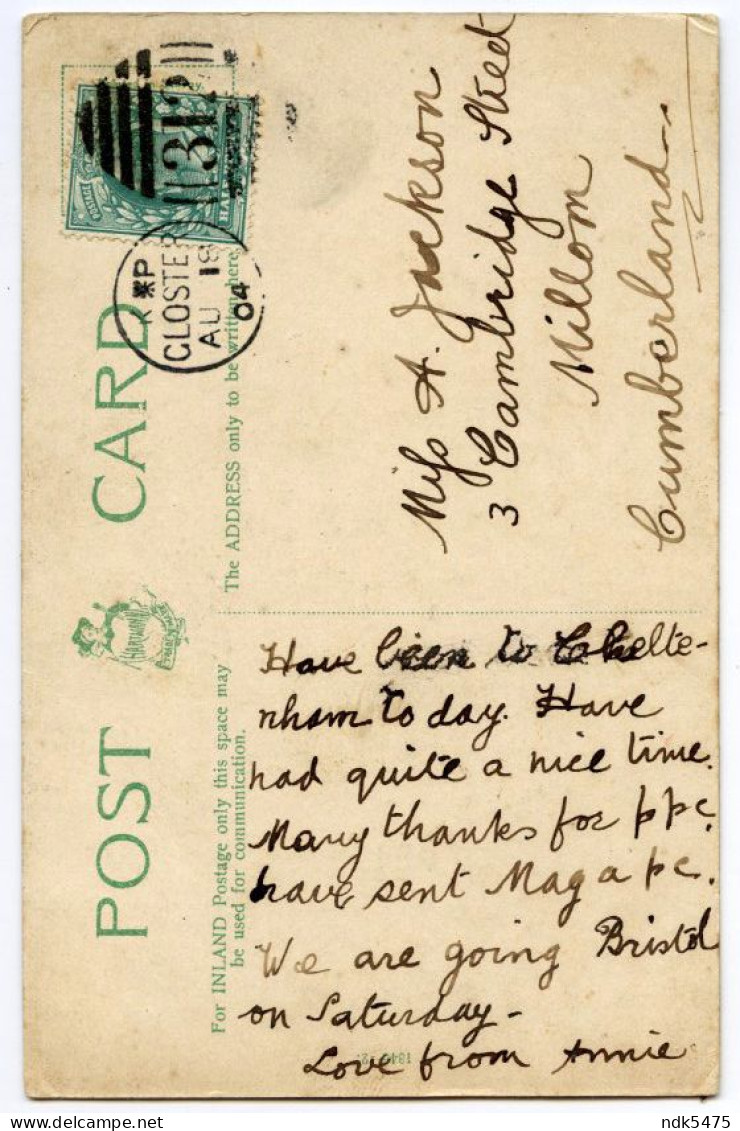 POST CARD
HARTMANN
For INLAND Postage only this space may
be used for communication.
The ADDRESS only to be written here.
POSTAGE
312
CLOSTER
AU 18
04
Miss A. Jackson
3 Cambridge Street
Millom
Cumberland
Have been to Chelte-
nham to day. Have
had quite a nice time.
Many thanks for ppc.
have sent Mag a pc.
We are going Bristol
on Saturday -
Love from Annie
ndk5475